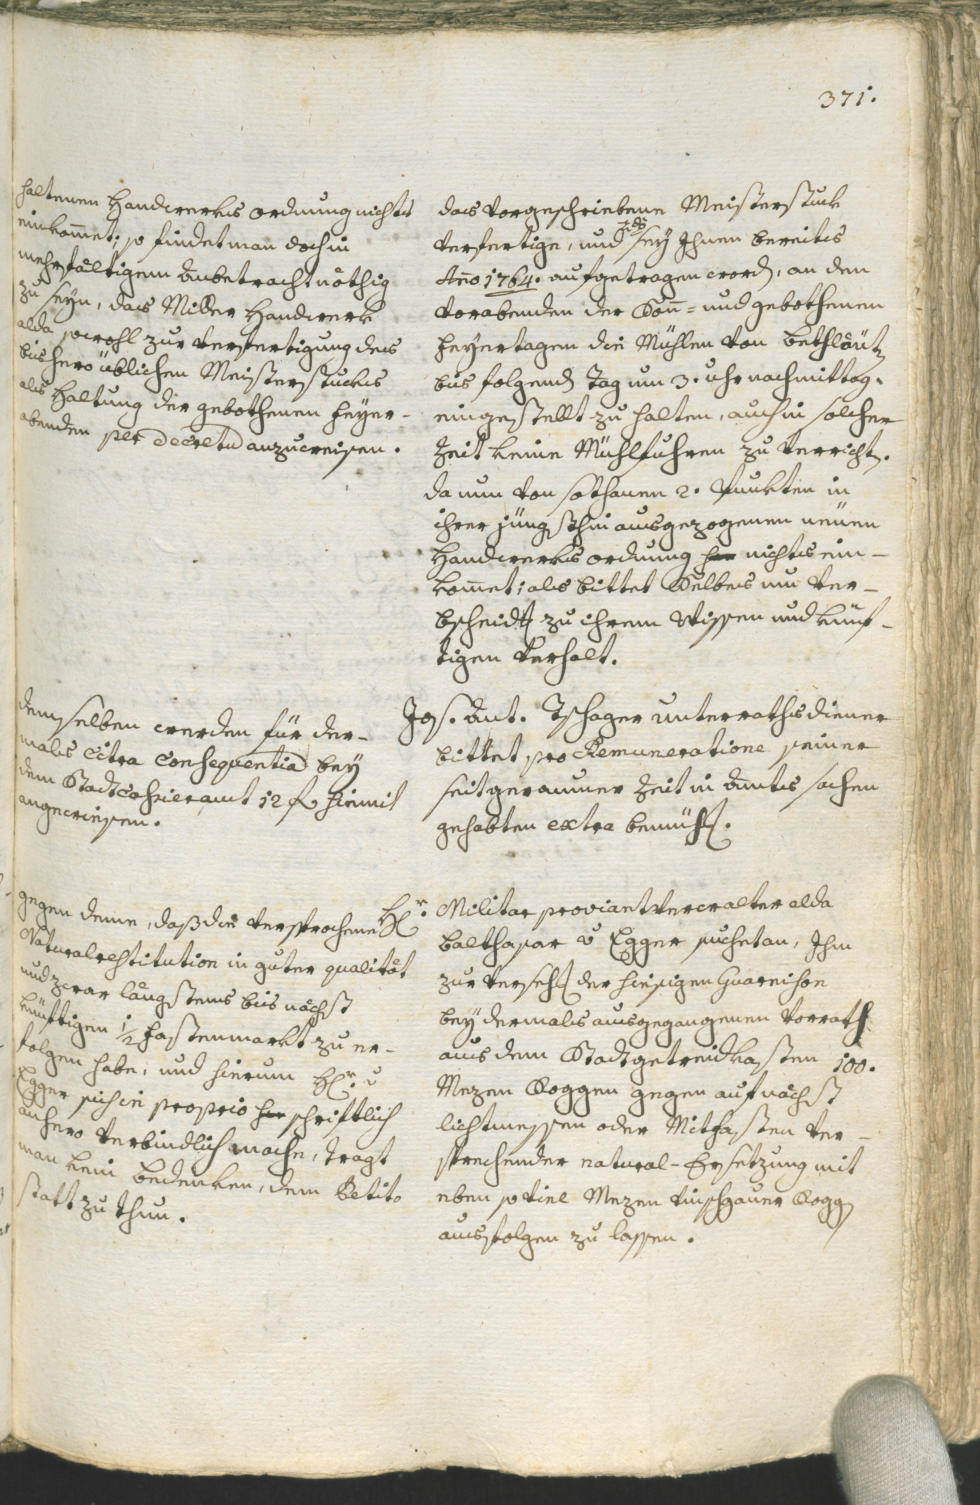 371.
haltenen Handwerks ordnung nichts
einkom̄et; so findet man doch in
mehrfältigem anbetracht nöthig
zu seyn, das Miller Handwerk
alda sowohl zur verfertigung des
bishero üblichen Meisterstucks
als Haltung der gebothenen feyer-
abenden per decretum anzuweisen.
das vorgeschriebene Meisterstuck
verfertige, und seÿ Ihnen bereits
Año 1764. aufgetragen word, an den
vorabenden der Soñ- und gebothenen
feyertagen die Mühlen von
bis folgend Tag um 3. uhr nachmittag.
eingestellt zu halten, auch in solcher
Zeit keine Mühlfuhren zu verricht.
da nun von sothanen 2. Punkten in
ihrer jüngsthin ausgezogenen neüen
Handwerks ordnung nichts ein-
kom̄et; als bittet selbes um ver-
bscheid zu ihrem Wissen und künf-
tigen verhalt.
demselben werden für der-
mals citra Consequentiam bey
dem Stadt Cassieramt 12 f hiemit
angewiesen.
Jos. Ant. Tschager unterrathsdiener
bittet pro Remuneratione seiner
seit geraumer Zeit in Amts sachen
gehabten extra bemüh.
gegen deme, daß die versprochene
Naturalrestitution in guter qualität
und zwar längstens bis nächst
künftigen 1/2 fastenmarkt zu er-
folgen habe, und hierum H. v
Egger sich in proprio schriftlich
anhero verbindlich mache, tragt
man kein bedenken, dem Petito
statt zu thun.
H. Militar proviantverwalter alda
Balthasar v Egger suchet an, Ihm
zur verseh der hiesigen Guarnison
bey dermals ausgegangenen vorrath
aus dem Stadtgetreidkasten 100.
Mezen Roggen gegen auf nächst
lichtmessen oder Mitfasten ver-
sprechender natural-Ersetzung mit
eben so viel Mezen vinschgauer Rogg
ausfolgen zu lassen.